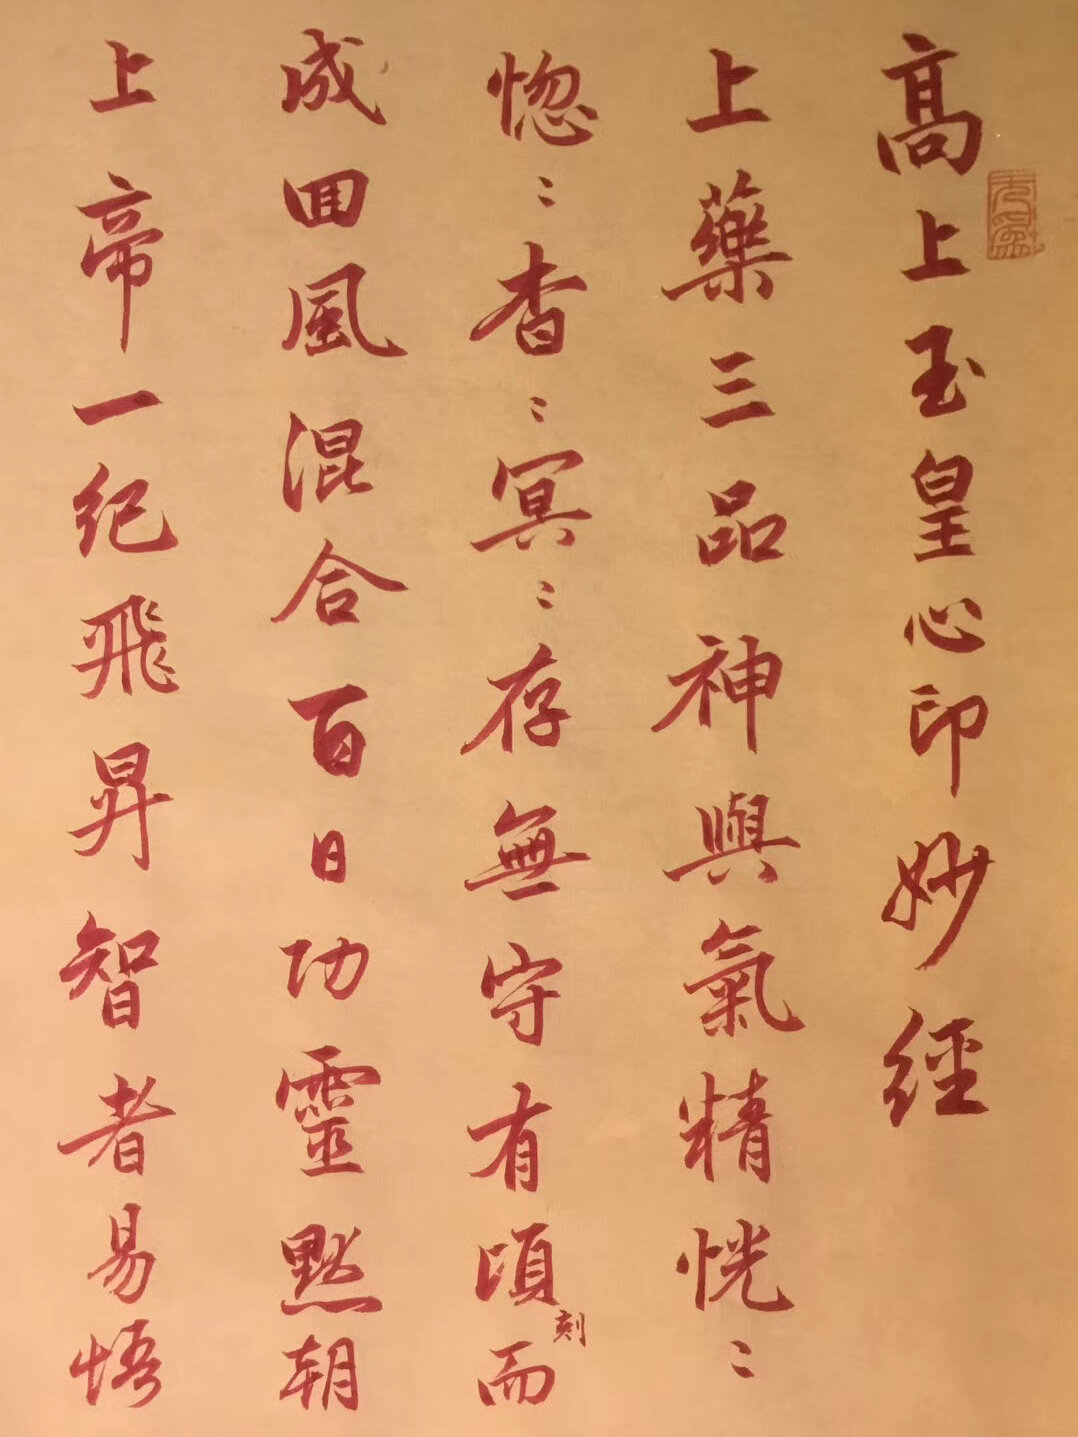 高上玉皇心印妙經
上藥三品神與氣精恍〻
惚〻杳〻冥〻存無守有頃刻而
成回風混合百日功靈默朝
上帝一紀飛昇智者易悟